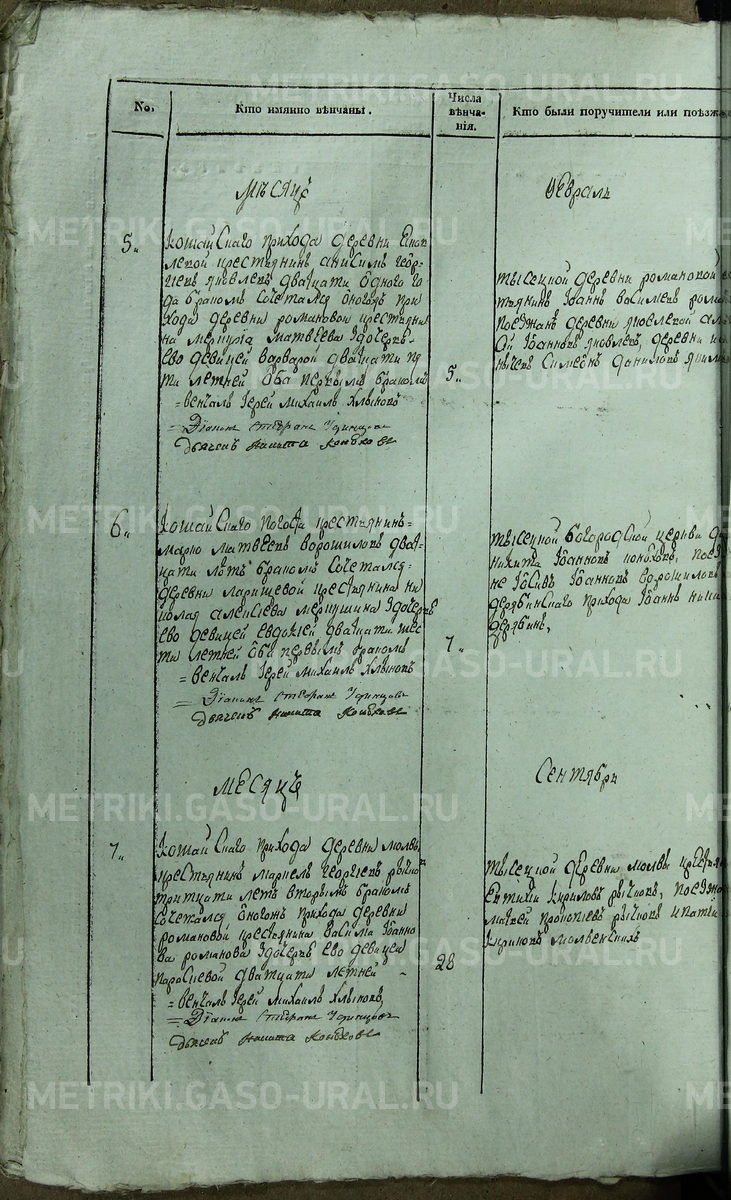 No.
Кто имянно вѣнчаны.
Числа вѣнча-нія.
Кто были поручители или поѣзж
мѣсяцъ
Февраль
5.
Кошайскаго прихода деревни
крестьянинъ анисимъ геор
гиевъ яковлевъ дватцати одного го
да бракомъ сочетался оногожъ при
хода деревни романовой крестьяни
на меркула матвеева здочерью
ево девицей варварой дватцати пя
ти летней оба первымъ бракомъ
=венчалъ Иерей михаилъ хлыновъ
=Диаконъ Стефанъ Удинцовъ
дьячекъ никита конюховъ
5.
тысецкой деревни романовой
тьянинъ Иоаннъ василиевъ рома
поезжанъ деревни яковлевой
ой Иоанновъ яковлевъ, деревни
Симеонъ даниловъ
6.
Кошайскаго погоста крестьянинъ=
марко матвеевъ ворошиловъ дват
цати летъ бракомъ сочетался=
деревни ларишевой крестьянина ни
колая алексиева меркушина здочерью
ево девицей евдокией дватцати шес
ти летней оба первымъ бракомъ
=венчалъ Иерей михаилъ хлыновъ
=Диаконъ Стефанъ Удинцовъ
дьячекъ никита конюховъ
7.
тысецкой богородской церкви
никита Иоанновъ конюховъ, поез
не Иоанновъ ворошиловъ
дерябинскаго прихода Иоаннъ
дерябинъ,
месяцъ
Сентябрь
7.
Кошайскаго прихода деревни молвы
крестьянинъ георгиевъ рычко
тритцати летъ вторымъ бракомъ
сочетался оногожъ прихода деревни
романовой крестьянина василья Иоанно
ва романова здочерью ево девицей
дватцати летней
=венчалъ Иерей михаилъ хлыновъ
=Диаконъ Стефанъ Удинцовъ
дьячекъ никита конюховъ
28
тысецкой деревни молвы крестья
кириловъ рычковъ, поезжа
прокопиевъ рычковъ
METRIKI.GASO-URAL.RU